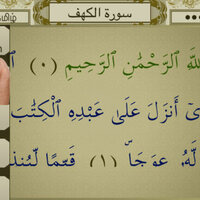 سورة الكهف
ٱللَّهِ ٱلرَّحْمَٰنِ ٱلرَّحِيمِ (٠)
أَنزَلَ عَلَىٰ عَبْدِهِ ٱلْكِتَٰبَ
لَّهُۥ عِوَجَاۜ (١) قَيِّمًا